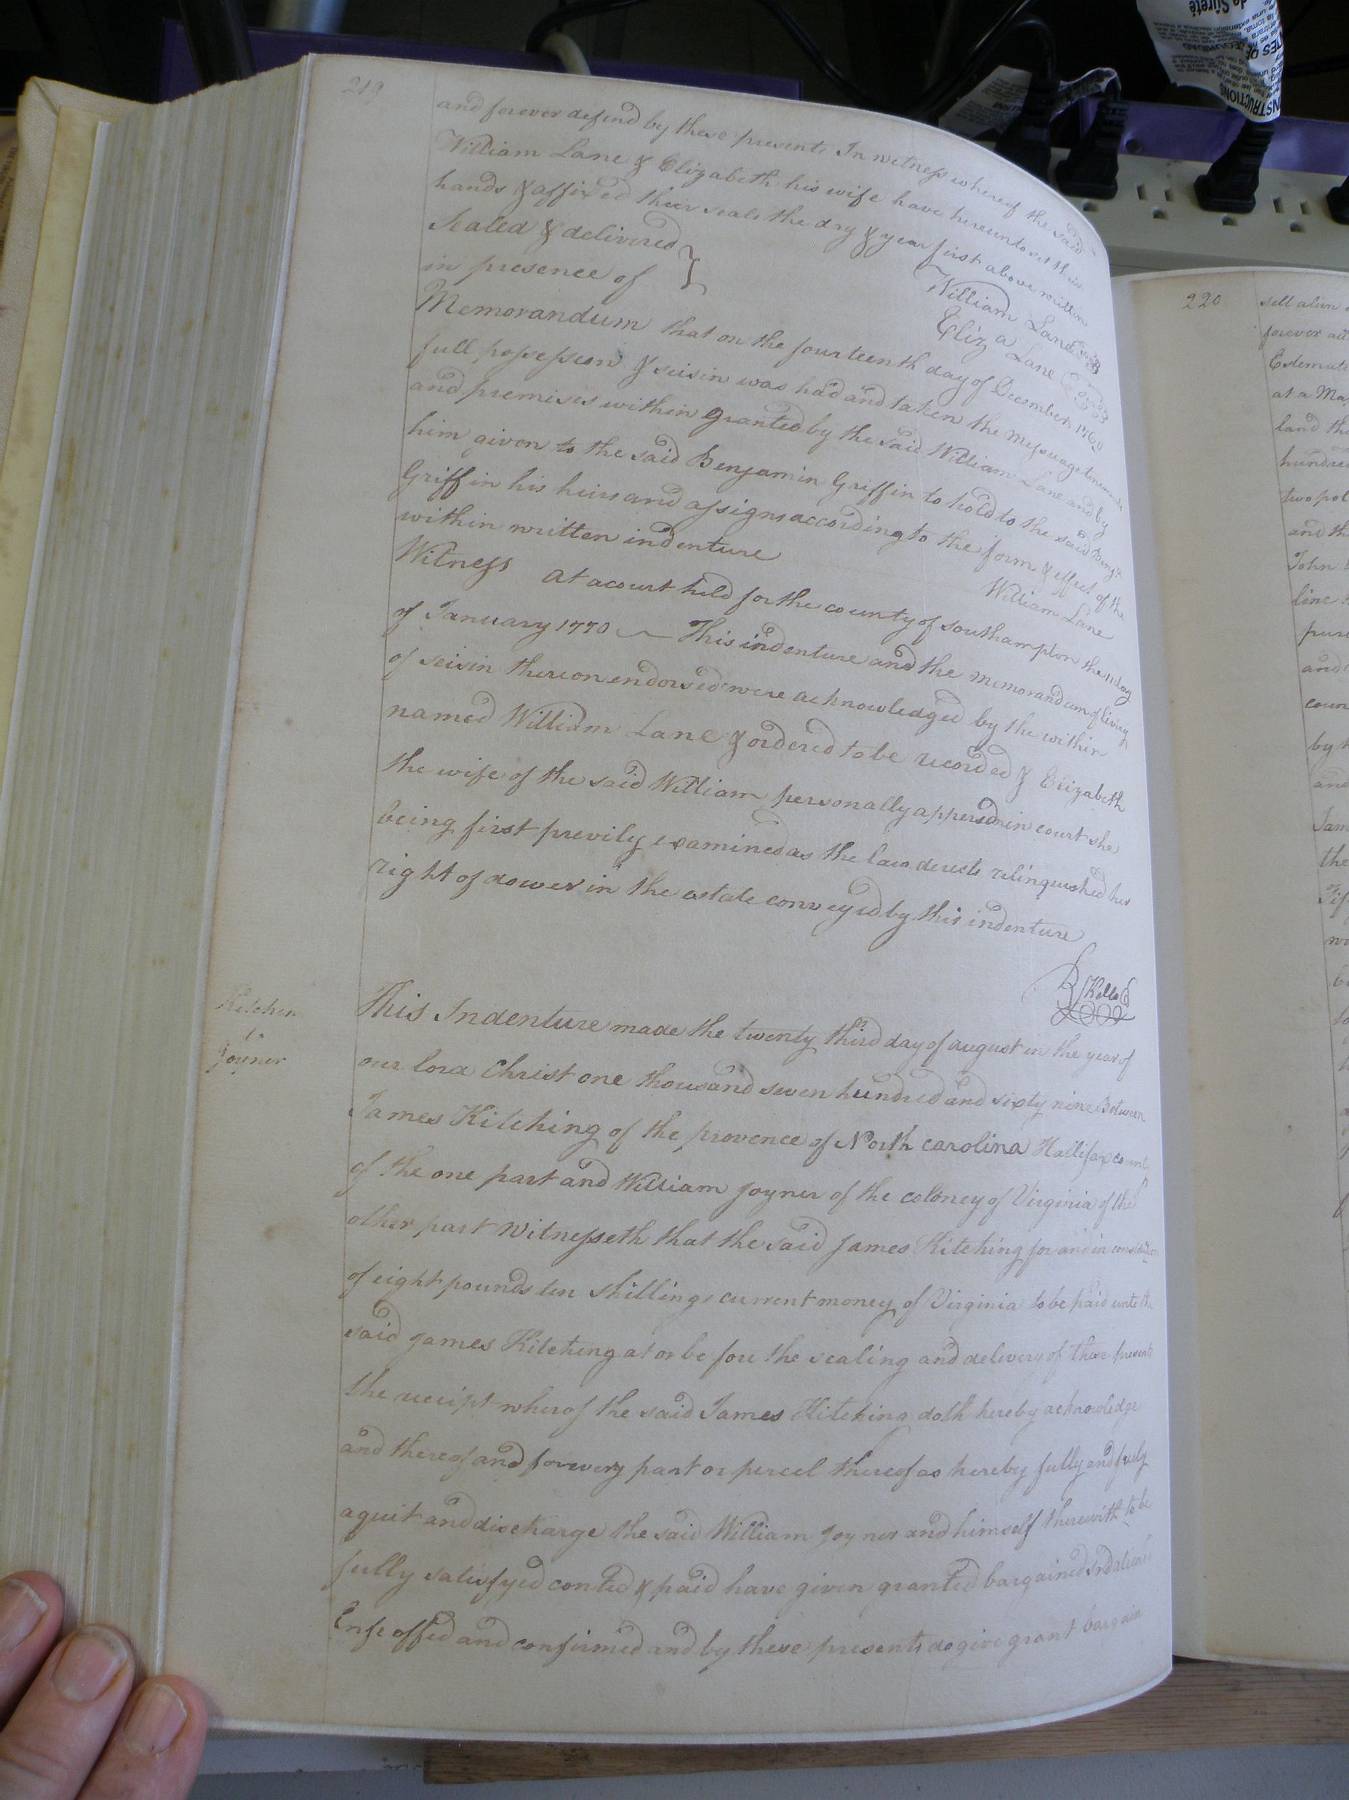 219
and forever defend by these presents In witness whereof the said
William Lane & Elizabeth his wife have hereunto set their
hands & affixed their seals the day & year first above written
Sealed & delivered
in presence of
William Lane
Eliza Lane
Memorandum that on the fourteenth day of December 1760
full possession & seisin was had and taken the messuage tenements
and premises within granted by the said William Lane and by
him given to the said Benjamin Griffin to hold to the said Benja
Griffin his heirs and assigns according to the form & effect of the
within written indenture
William Lane
Witness at a court held for the county of Southampton the 11 day
of January 1770 This indenture and the memorandum of livery
of seisin thereon endorsed were acknowledged by the within
named William Lane & ordered to be recorded & Elizabeth
the wife of the said William personally appersd in court she
being first previly examined as the law directs relinquished her
right of dower in the estate conveyed by this indenture
Kitchen
to
Joyner
This Indenture made the twenty third day of august in the year of
our lord Christ one thousand seven hundred and sixty nine Between
James Kitching of the provence of North carolina Hallifax county
of the one part and William Joyner of the coloney of Virginia of the
other part Witnesseth that the said James Kitching for and in
of eight pounds ten shillings current money of Virginia to be paid unto the
said James Kitching at or before the sealing and delivery of these presents
the receipt wherof the said James Kitching doth hereby acknowledge
and thereof and for every part or percel thereof as hereby fully and freely
aquit and discharge the said William Joyner and himself therewith to be
fully satisfyed conted & paid have given granted bargained
Enfeoffed and confirmed and by these presents do give grant bargain
220
sell alien
forever all
Estemate
at a Ma
land the
hundred
two pol
and th
John
line
purc
and
coun
by
and
Jam
the
Fif